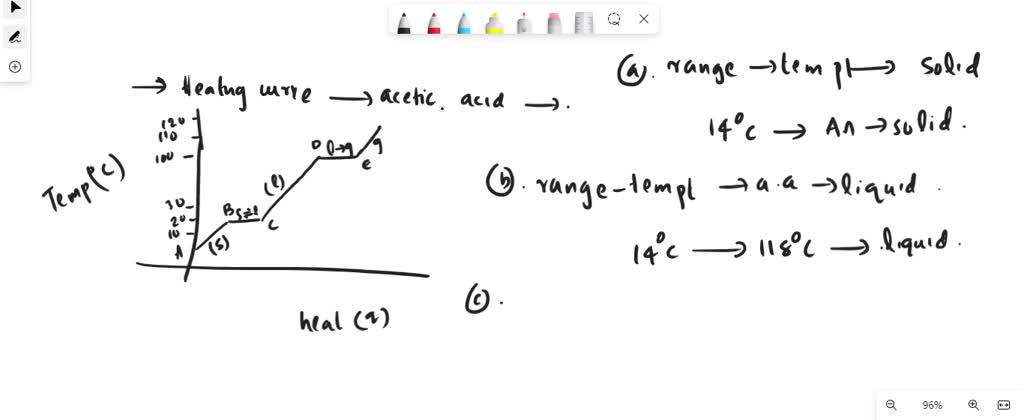 → Heating curve → acetic acid →.
120
110
100
30
20
10
Temp(°C)
A
(S)
B
S⇌l
C
(l)
D
l→g
e
g
heat (q)
(a). range → tempt → solid
14°C → AA → solid.
(b). range-tempt → a.a → liquid.
14°C → 118°C → liquid.
(c).
96%